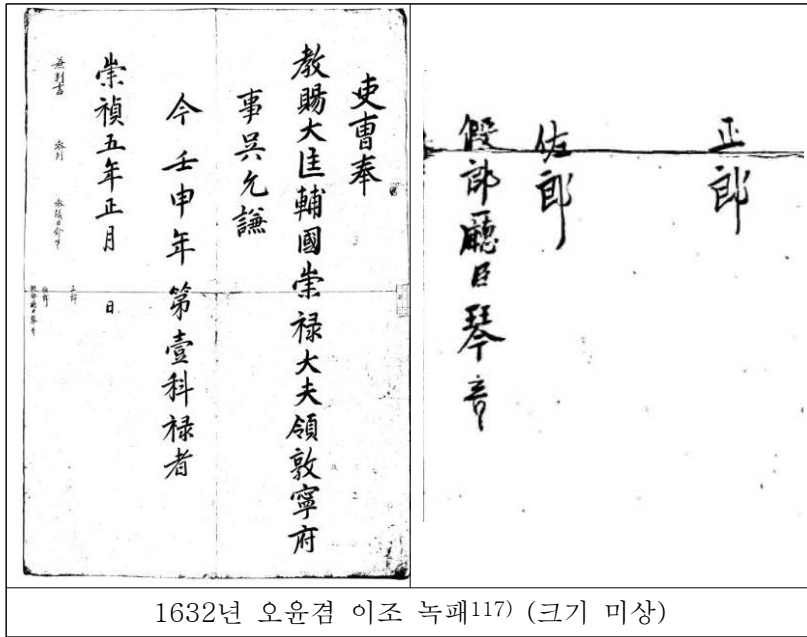 吏曹奉
教賜大匡輔國崇禄大夫領敦寧府
事吳允謙
今壬申年第壹科禄者
崇禎五年正月 日
兼判書 參判 參議臣兪
正郎
佐郎
假郎廳臣琴
正郎
佐郎
假郎廳臣琴
1632년 오윤겸 이조 녹패117) (크기 미상)